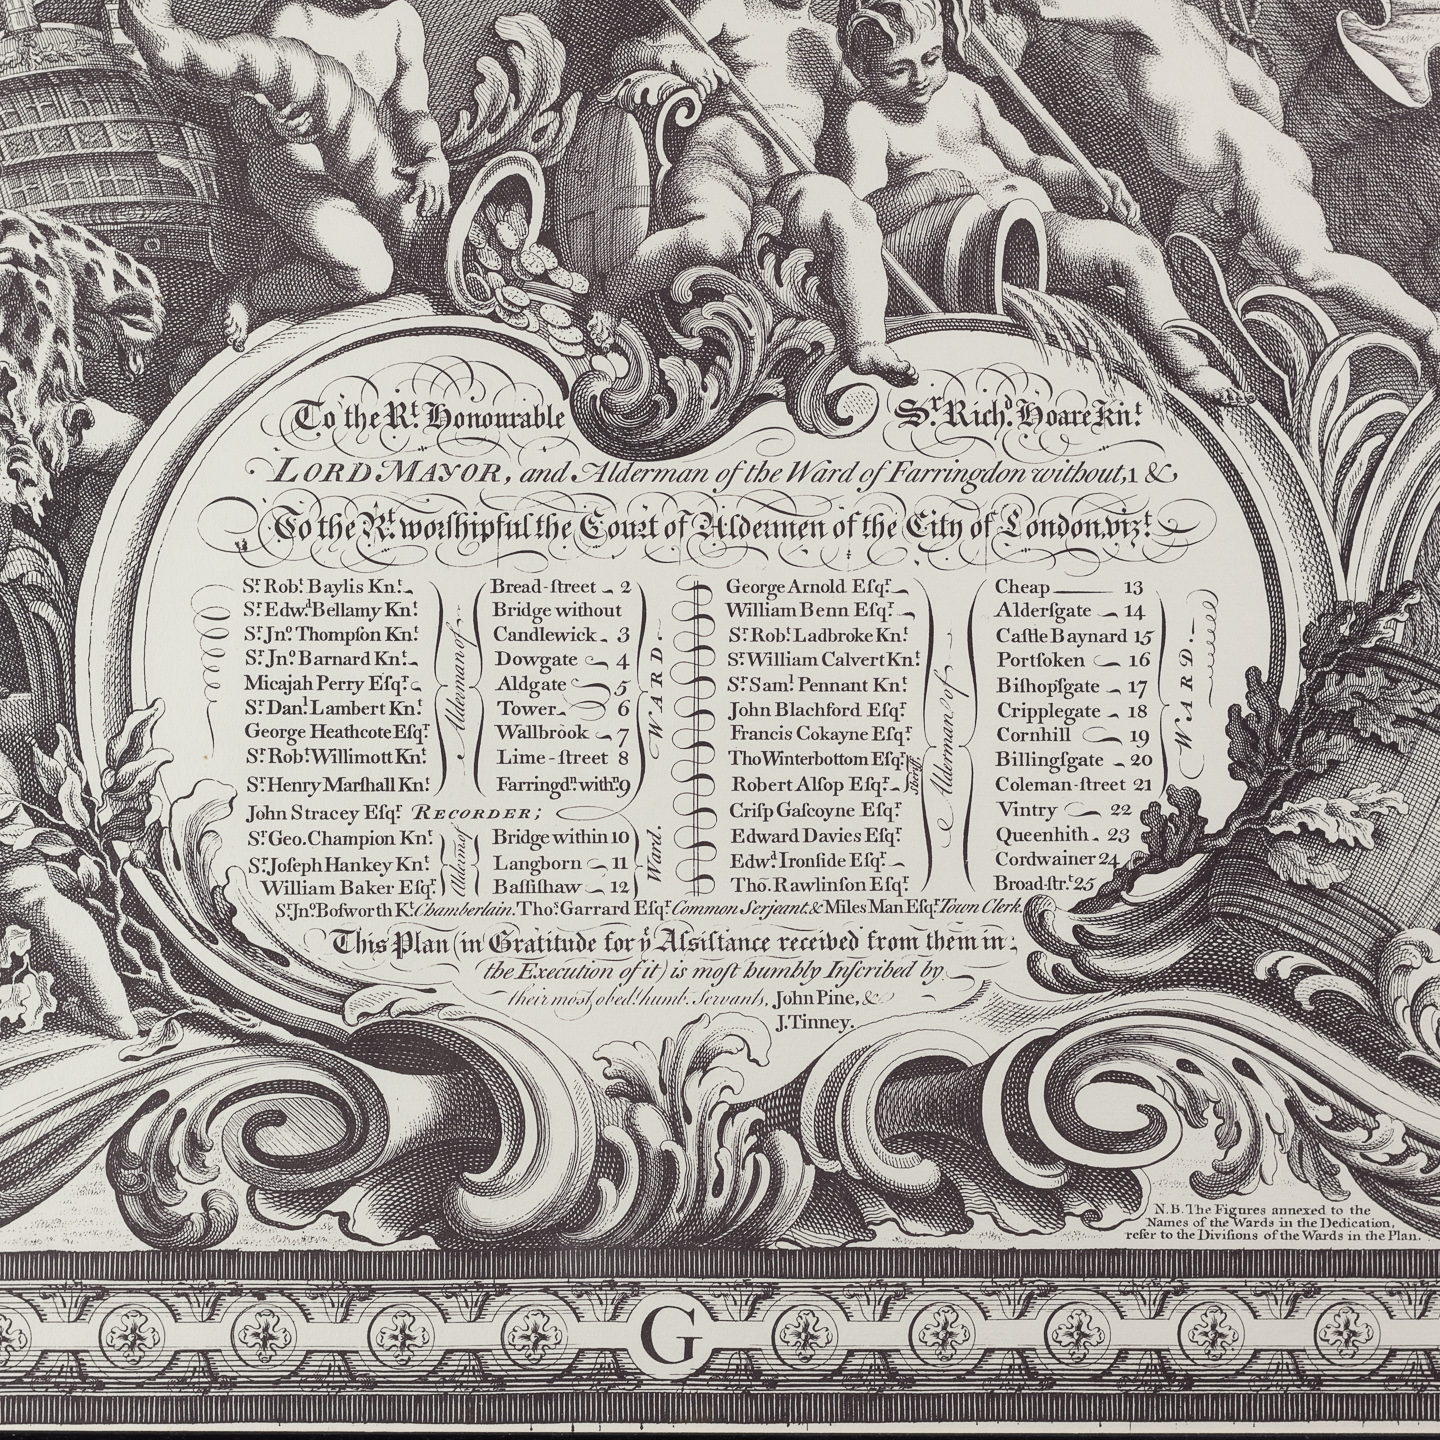 To the Rt. Honourable Sr. Richd. Hoare Knt.
LORD MAYOR, and Alderman of the Ward of Farringdon without, 1 &
To the Rt. worſhipful the Court of Aldermen of the City of London, vizt.
Sr. Robt. Baylis Knt. Bread-ſtreet 2 George Arnold Eſqr. Cheap 13
Sr. Edwd. Bellamy Knt. Bridge without William Benn Eſqr. Alderſgate 14
Sr. Jno. Thompſon Knt. Candlewick 3 Sr. Robt. Ladbroke Knt. Caſtle Baynard 15
Sr. Jno. Barnard Knt. Dowgate 4 Sr. William Calvert Knt. Portſoken 16
Micajah Perry Eſqr. Alderman of Aldgate 5 WARD. Sr. Saml. Pennant Knt. Biſhopſgate 17 WARD.
Sr. Danl. Lambert Knt. Tower 6 John Blachford Eſqr. Alderman of Cripplegate 18
George Heathcote Eſqr. Wallbrook 7 Francis Cokayne Eſqr. Cornhill 19
Sr. Robt. Willimott Knt. Lime-ſtreet 8 Tho Winterbottom Eſqr. Billingſgate 20
Sr. Henry Marſhall Knt. Farringdn. withn. 9 Robert Alſop Eſqr. Sheriffs Coleman-ſtreet 21
John Stracey Eſqr. RECORDER; Criſp Gaſcoyne Eſqr. Vintry 22
Sr. Geo. Champion Knt. Bridge within 10 Edward Davies Eſqr. Queenhith 23
Sr. Joſeph Hankey Knt. Aldermn. of Langborn 11 Ward. Edwd. Ironſide Eſqr. Cordwainer 24
William Baker Eſqr. Baſſiſhaw 12 Tho. Rawlinſon Eſqr. Broad-ſtr.t 25
Sr. Jno. Boſworth Kt. Chamberlain. Thos. Garrard Eſqr. Common Serjeant, & Miles Man Eſqr. Town Clerk.
This Plan (in Gratitude for ye Aſsiſtance received from them in
the Execution of it) is moſt humbly Inſcribed by
their most obedt. humb. Servants, John Pine, &
J. Tinney.
N.B. The Figures annexed to the
Names of the Wards in the Dedication,
refer to the Diviſions of the Wards in the Plan.
G